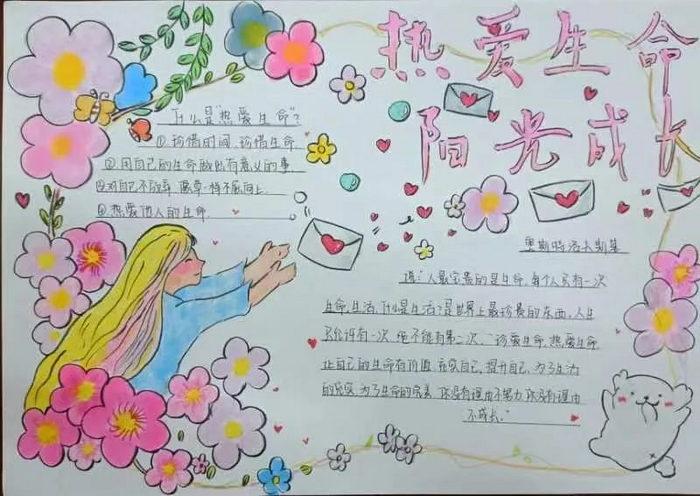 热爱生命
阳光成长
什么是"热爱生命"?
①珍惜时间、珍惜生命.
②用自己的生命做出有意义的事
③对自己不放弃 像草一样不屈向上.
④热爱他人的生命.
奥斯特洛夫斯基
说:"人最宝贵的是生命,每个人只有一次
生命,生活,什么是生活?是世界上最珍贵的东西,人生
只允许有一次,绝不能有第二次."珍爱生命,热爱生命
让自己的生命有价值,充实自己,提升自己,为了生活
的充实,为了生命的完美,你没有理由不努力,你没有理由
不成长."